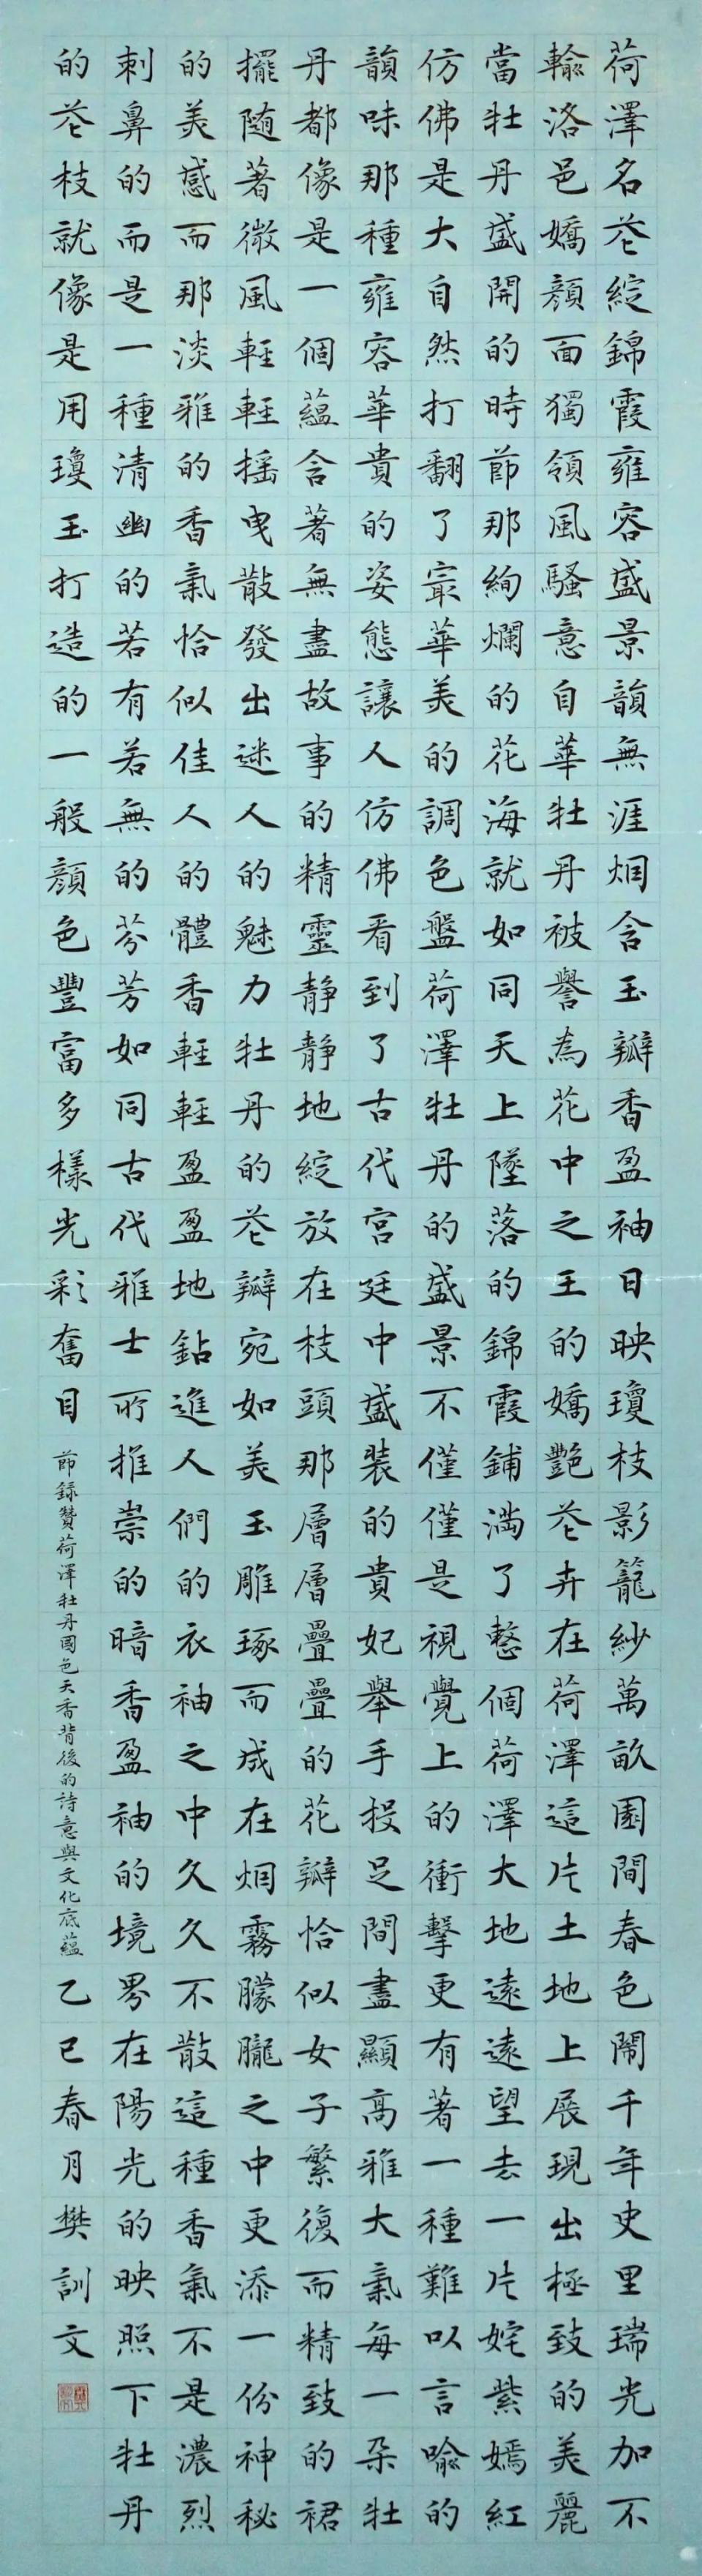 荷澤名花綻錦霞雍容盛景韻無涯烟含玉瓣香盈袖日映瓊枝影籠紗萬畝園間春色鬧千年史里瑞光加不
輸洛邑嬌顏面獨領風騷意自華牡丹被譽為花中之王的嬌艷花卉在荷澤這片土地上展現出極致的美麗
當牡丹盛開的時節那絢爛的花海就如同天上墜落的錦霞鋪滿了整個荷澤大地遠遠望去一片姹紫嫣紅
仿佛是大自然打翻了最華美的調色盤荷澤牡丹的盛景不僅僅是視覺上的衝擊更有著一種難以言喻的
韻味那種雍容華貴的姿態讓人仿佛看到了古代宮廷中盛裝的貴妃舉手投足間盡顯高雅大氣每一朵牡
丹都像是一個蘊含著無盡故事的精靈靜靜地綻放在枝頭那層層疊疊的花瓣恰似女子繁復而精致的裙
擺隨著微風輕輕搖曳散發出迷人的魅力牡丹的花瓣宛如美玉雕琢而成在烟霧朦朧之中更添一份神秘
的美感而那淡雅的香氣恰似佳人的體香輕輕盈盈地鉆進人們的衣袖之中久久不散這種香氣不是濃烈
刺鼻的而是一種清幽的若有若無的芬芳如同古代雅士所推崇的暗香盈袖的境界在陽光的映照下牡丹
的花枝就像是用瓊玉打造的一般顏色豐富多樣光彩奮目
節録贊荷澤牡丹國色天香背後的詩意與文化底蘊
乙巳春月樊訓文